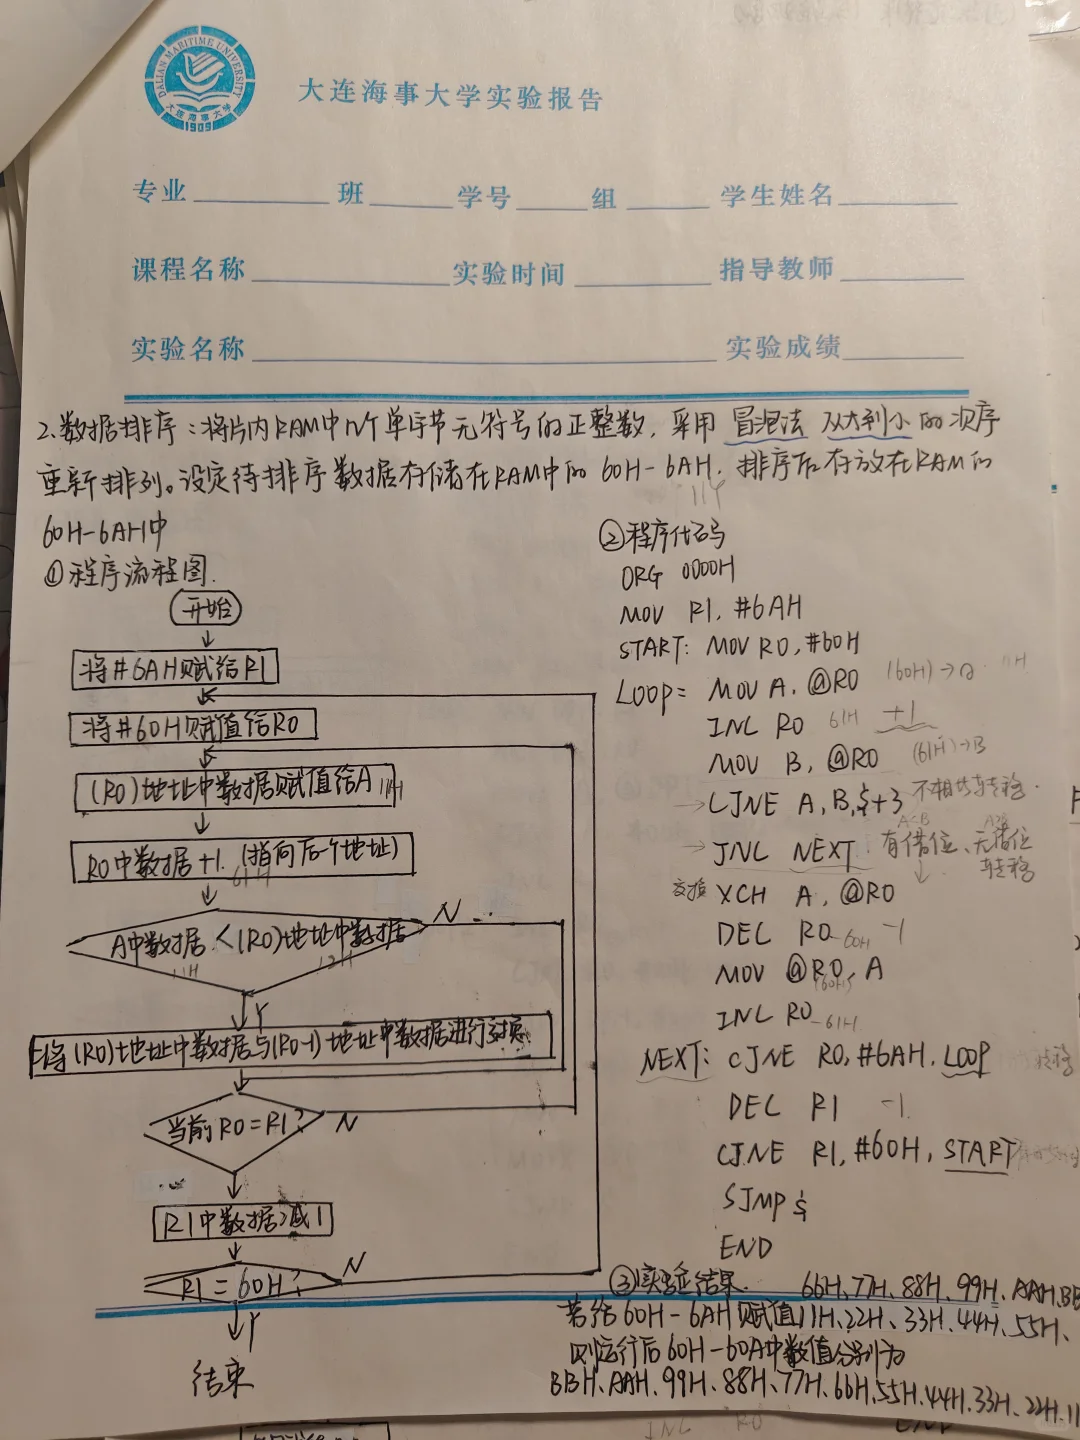 DALIAN MARITIME UNIVERSITY
大连海事大学
1909
大连海事大学实验报告
专业 班 学号 组 学生姓名
课程名称 实验时间 指导教师
实验名称 实验成绩
2.数据排序：将片内RAM中n个单字节无符号的正整数，采用冒泡法从大到小的次序
重新排列。设定待排序数据存储在RAM中的60H-6AH，排序后存放在RAM的
60H-6AH中
11个
①程序流程图.
开始
将#6AH赋给R1
将#60H赋值给R0
(R0)地址中数据赋值给A 11H
R0中数据+1.(指向后一个地址)
61H
A中数据<(R0)地址中数据
11H 12H
N
Y
将(R0)地址中数据与(R0-1)地址中数据进行交换
当前R0=R1?
N
R1中数据减1
R1=60H?
N
Y
结束
②程序代码
ORG 0000H
MOV R1, #6AH
START: MOV R0, #60H
LOOP: MOV A, @R0 (60H)→a 11H
INC R0 61H +1
MOV B, @R0 (61H)→B
→CJNE A, B, $+3 不相等转移.
A<B A≥B
→JNC NEXT 有借位、无借位
转移
交换 XCH A, @R0
DEC R0 60H -1
MOV @R0, A
(60H)
INC R0 61H
NEXT: CJNE R0, #6AH, LOOP 转移
DEC R1 -1
CJNE R1, #60H, START
SJMP $
END
③实验结果. 66H、77H、88H、99H、AAH、BB
若给60H-6AH赋值11H、22H、33H、44H、55H、
则运行后60H-60A中数值分别为
BBH、AAH、99H、88H、77H、66H、55H、44H、33H、22H、11